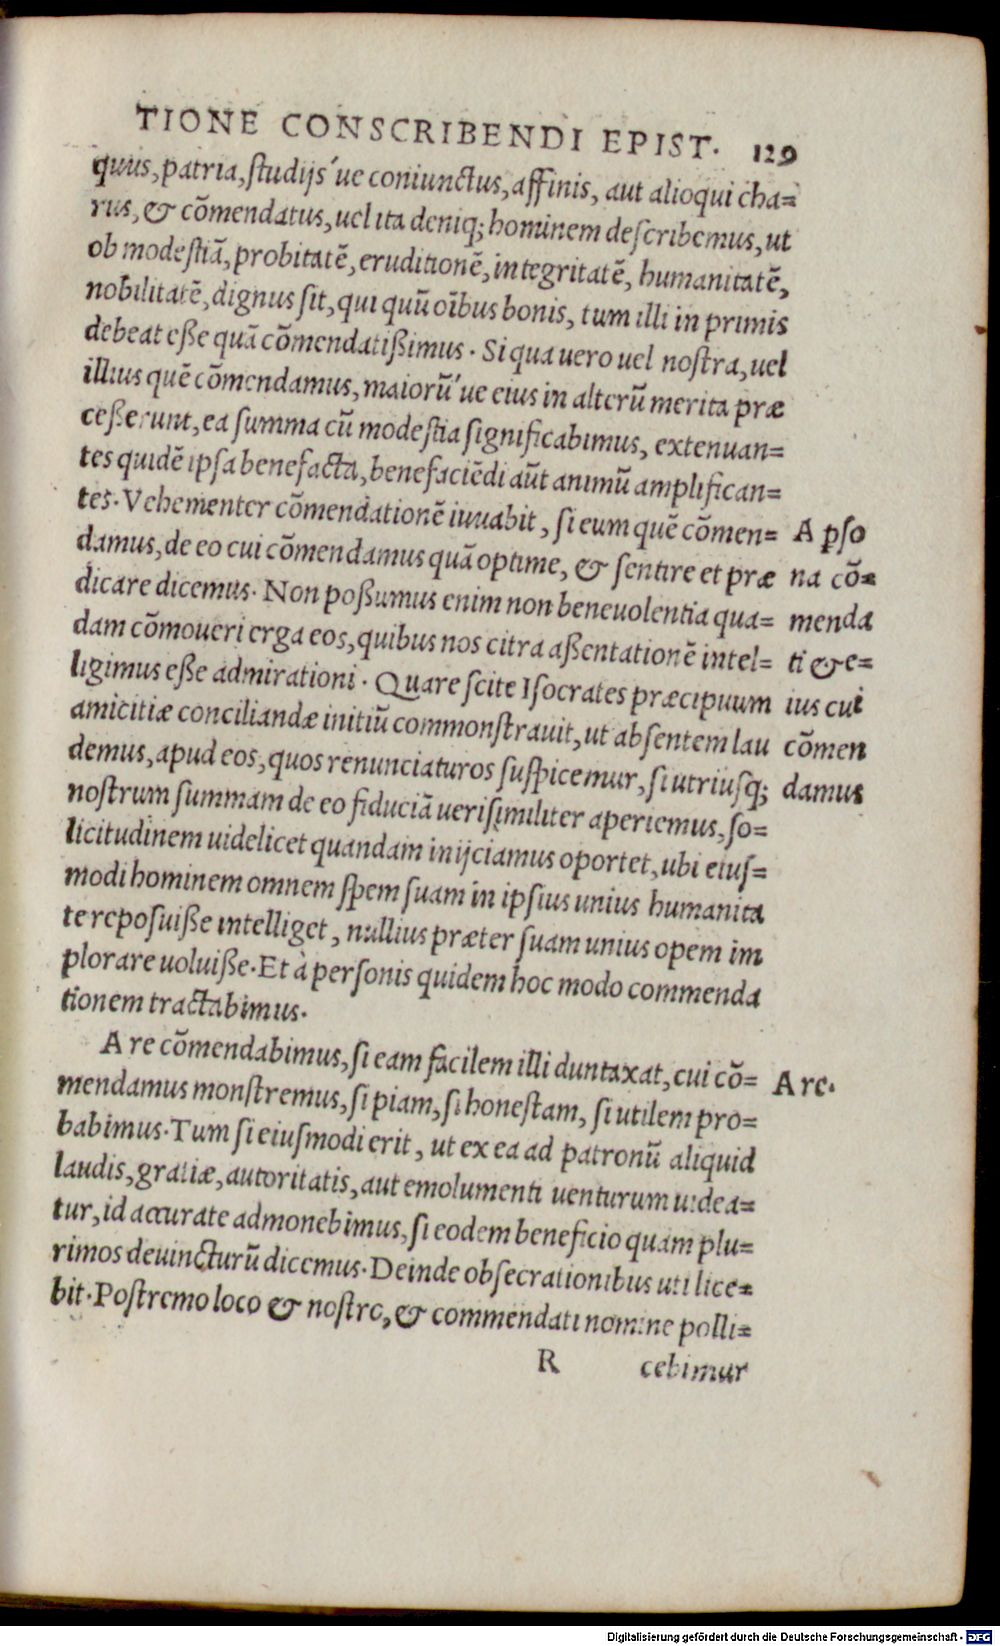 TIONE CONSCRIBENDI EPIST. 129
quus, patria, studijs´ue coniunctus, affinis, aut alioqui cha=
rus, & cōmendatus, uel ita deniq; hominem describemus, ut
ob modestiā, probitatē, eruditionē, integritatē, humanitatē,
nobilitatē, dignus sit, qui quū oībus bonis, tum illi in primis
debeat eße quā cōmendatißimus. Si qua uero uel nostra, uel
illius quē cōmendamus, maiorū´ue eius in alterū merita præ
ceßerunt, ea summa cū modestia significabimus, extenuan=
tes quidē ipsa benefacta, benefaciēdi aūt animū amplifican=
tes. Vehementer cōmendationē iuuabit, si eum quē cōmen=
damus, de eo cui cōmendamus quā optime, & sentire et præ
dicare dicemus. Non poßumus enim non beneuolentia qua=
dam cōmoueri erga eos, quibus nos citra aßentationē intel=
ligimus eße admirationi. Quare scite Isocrates præcipuum
amicitiæ conciliandæ initiū commonstrauit, ut absentem lau
demus, apud eos, quos renunciaturos suspicemur, si utriusq;
nostrum summam de eo fiduciā uerisimiliter aperiemus, so=
licitudinem uidelicet quandam inijciamus oportet, ubi eius=
modi hominem omnem spem suam in ipsius unius humanita
te reposuiße intelliget, nullius præter suam unius opem im
plorare uoluiße. Et à personis quidem hoc modo commenda
tionem tractabimus.
A pso
na cō=
menda
ti & e=
ius cui
cōmen
damus
A re cōmendabimus, si eam facilem illi duntaxat, cui cō=
mendamus monstremus, si piam, si honestam, si utilem pro=
babimus. Tum si eiusmodi erit, ut ex ea ad patronū aliquid
laudis, gratiæ, autoritatis, aut emolumenti uenturum uidea=
tur, id accurate admonebimus, si eodem beneficio quam plu=
rimos deuincturū dicemus. Deinde obsecrationibus uti lice=
bit. Postremo loco & nostro, & commendati nomine polli=
A re.
R cebimur
Digitalisierung gefördert durch die Deutsche Forschungsgemeinschaft - DFG